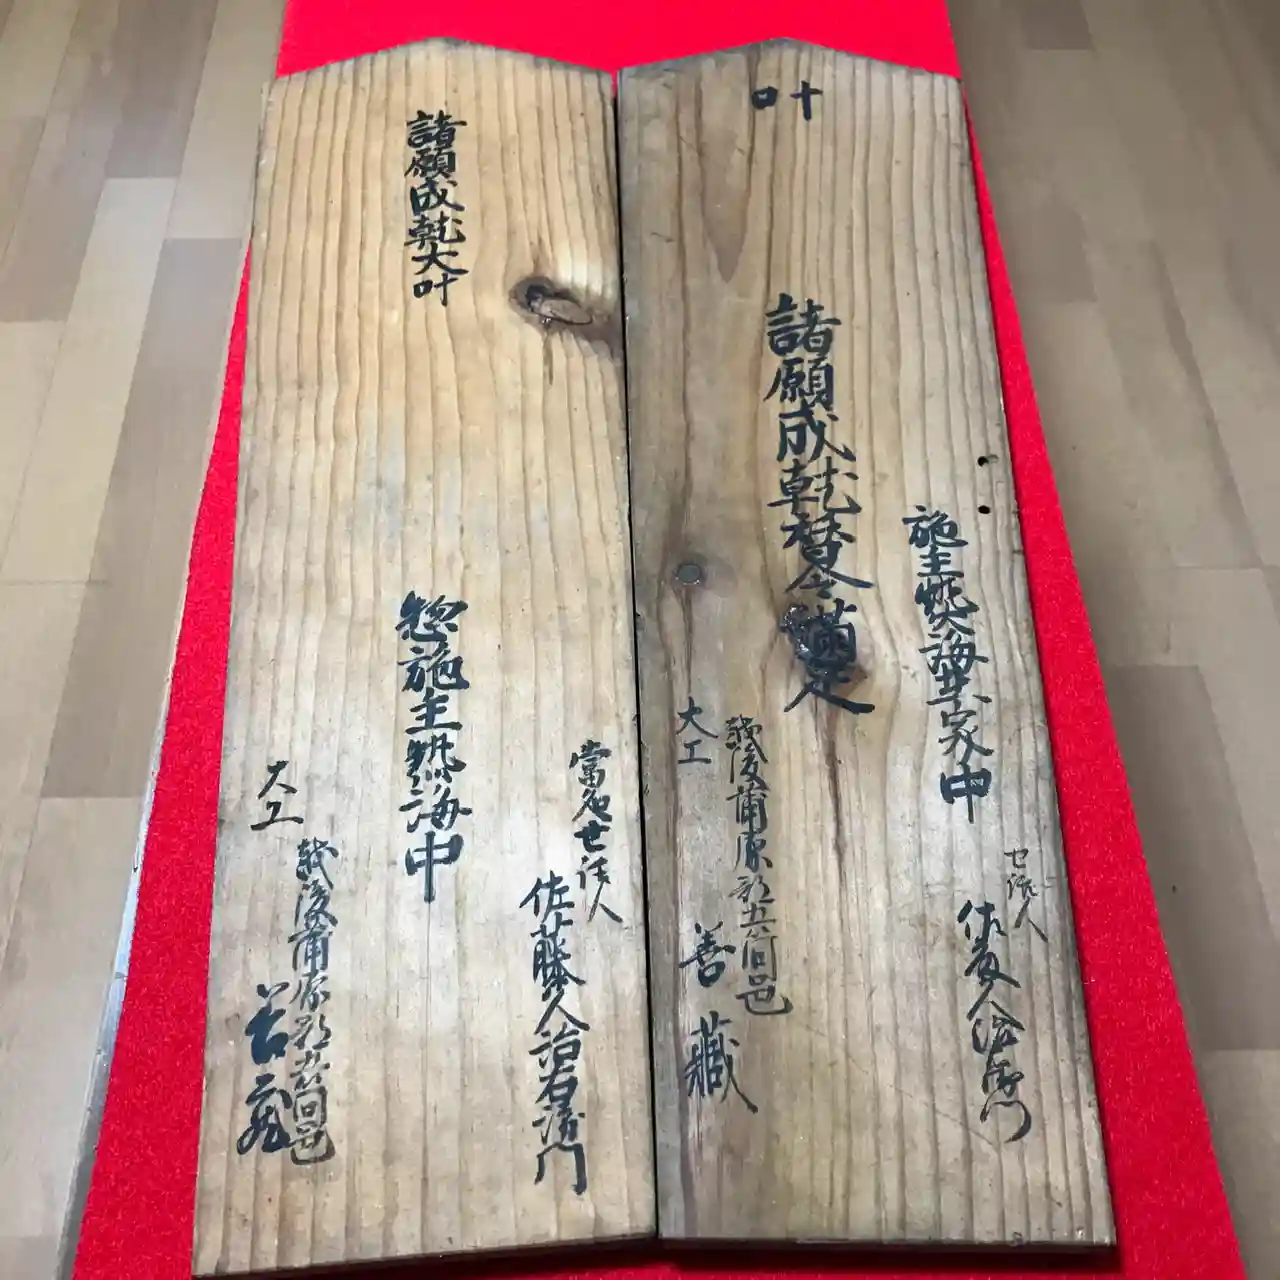 叶
施主熱海家中
世話人
佐藤久治右衛門
諸願成就皆令滿足
越後蒲原郡五邑
大工
善藏
當世話人
佐藤久治右衛門
諸願成就大叶
惣施主熱海中
越後蒲原郡五邑
大工
善藏